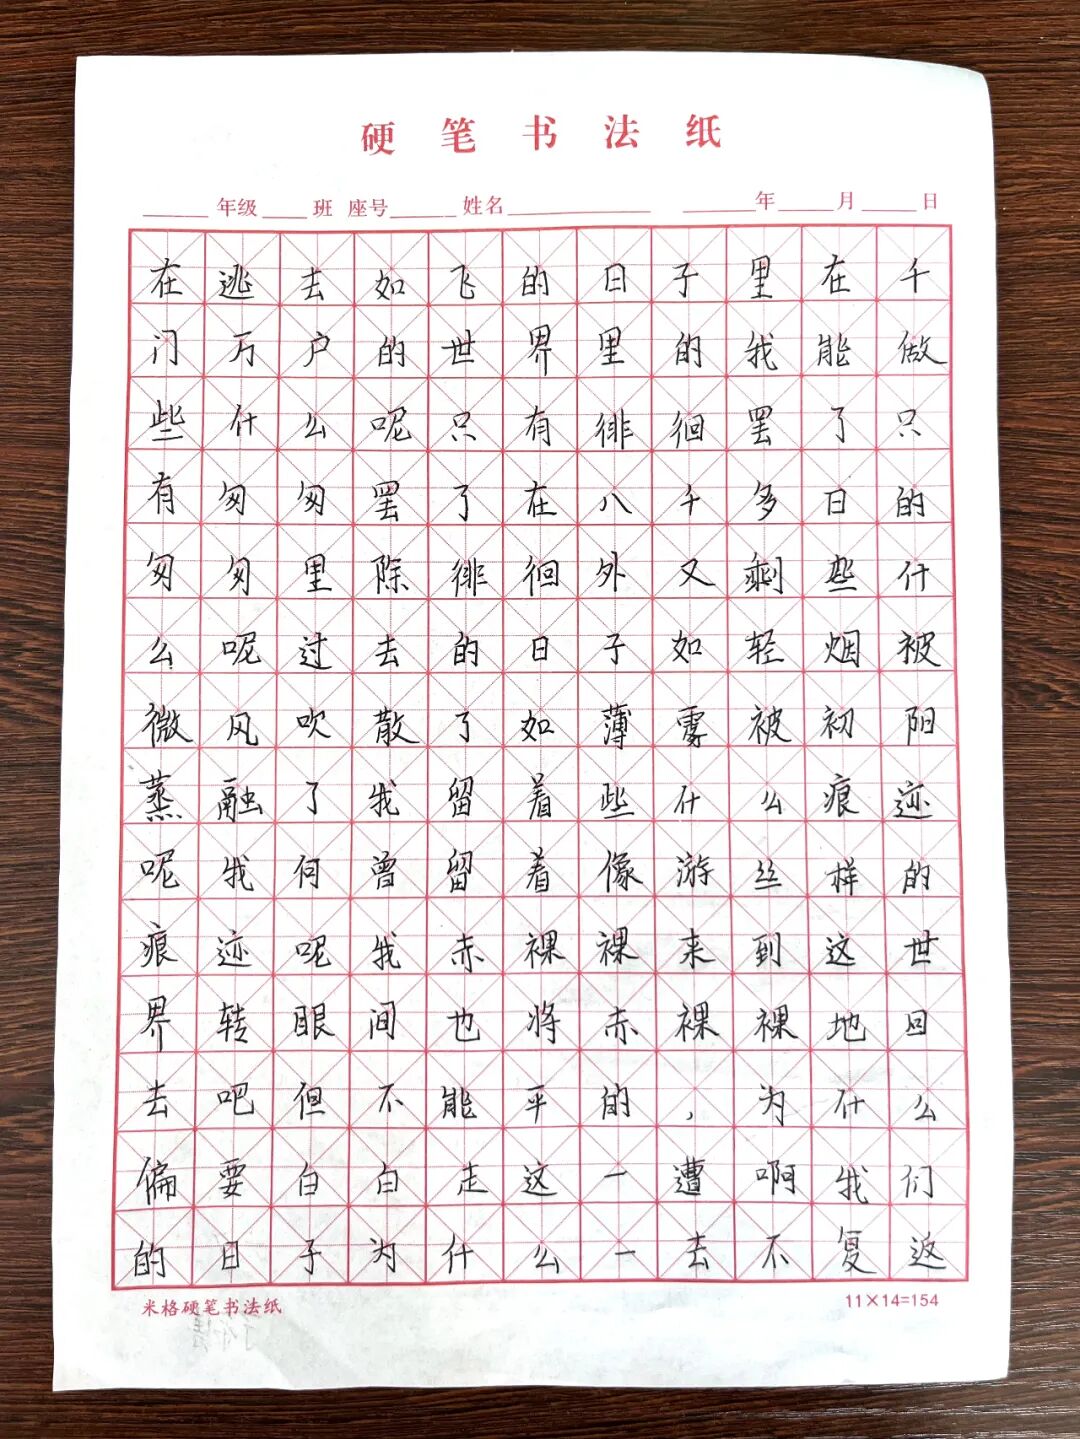 硬笔书法纸
年级 班 座号 姓名 年 月 日
在逃去如飞的日子里在千
门万户的世界里的我能做
些什么呢只有徘徊罢了只
有匆匆罢了在八千多日的
匆匆里除徘徊外又剩些什
么呢过去的日子如轻烟被
微风吹散了如薄雾被初阳
蒸融了我留着些什么痕迹
呢我何曾留着像游丝样的
痕迹呢我赤裸裸来到这世
界转眼间也将赤裸裸地回
去吧但不能平的，为什么
偏要白白走这一遭啊我们
的日子为什么一去不复返
米格硬笔书法纸 11×14=154